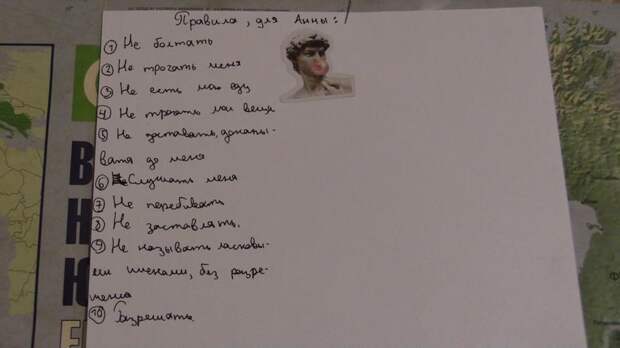 Правила, для Анны:
① Не болтать
② Не трогать меня
③ Не есть мою еду
④ Не трогать мои вещи
⑤ Не доставать, докапы-
ватя до меня
⑥ Слушать меня
⑦ Не перебивать
⑧ Не заставлять.
⑨ Не называть ласковы-
ми именами, без разре-
шения
⑩ Разрешать
В
Н
Ю
Е